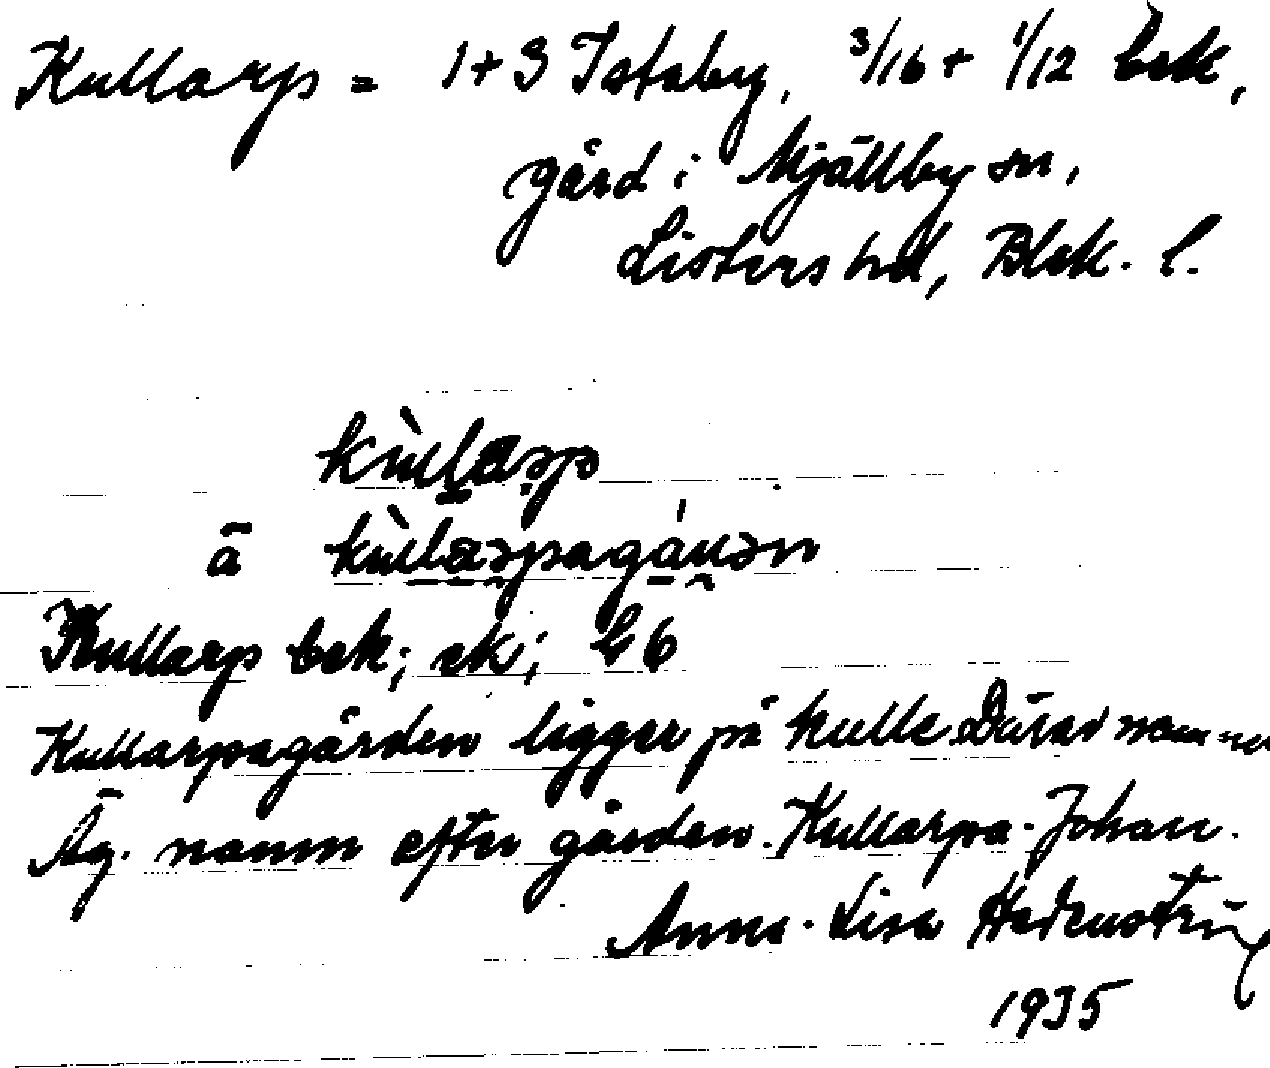 Kullarp = 1+3 Istaby, 3/16 + 1/12 bek,
gård i Mjällby sn,
Listers hd, Blek. l.
kùllaɘp
ā kùllaɘpagáɹɘn
Kullarp bek; ek; Gb
Kullarpagården ligger på kulle Därav namnet
Äg. namn efter gården. Kullarpa-Johan.
Anna-Lisa
1935